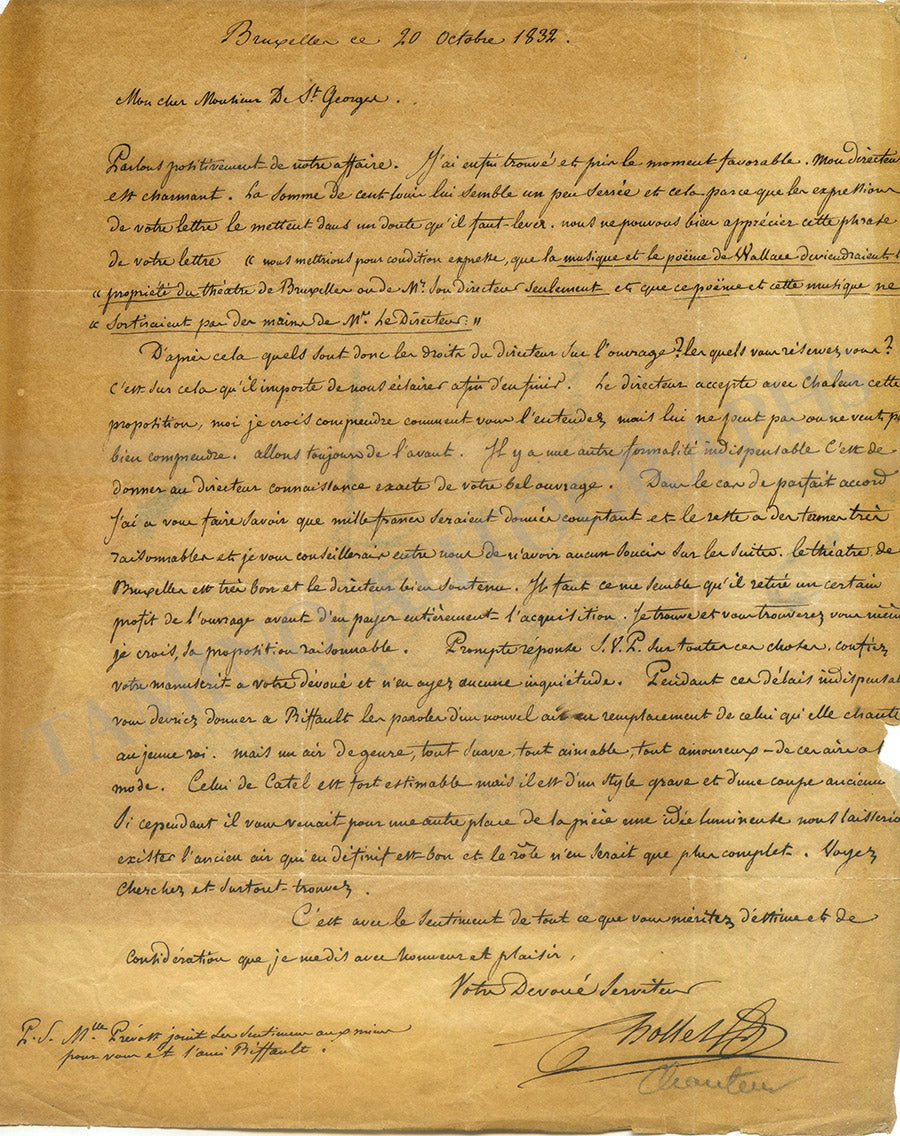 Bruxelles ce 20 Octobre 1832.
Mon cher Monsieur De St Georges.
Parlons positivement de notre affaire. J'ai enfin trouvé et pris le moment favorable. Mon directeur
est charmant. La somme de cent louis lui semble un peu serrée et cela parce que les expressions
de votre lettre le mettent dans un doute qu'il faut lever. nous ne pouvons bien apprécier cette phrase
de votre lettre « nous mettrions pour condition expresse, que la musique et le poëme de Wallace deviendraient
« propriété du théatre de Bruxelles ou de Mr. son directeur seulement et que ce poëme et cette musique ne
« sortiraient pas des mains de Mr. Le Directeur. »
D'après cela quels sont donc les droits du directeur sur l'ouvrage? les quels vous réservez vous?
C'est sur cela qu'il importe de nous éclairer afin d'en finir. Le directeur accepte avec chaleur cette
proposition, moi je crois comprendre comment vous l'entendez mais lui ne peut pas ou ne veut pas
bien comprendre. allons toujours de l'avant. Il y a une autre formalité indispensable C'est de
donner au directeur connaissance exacte de votre bel ouvrage. Dans le cas de parfait accord
J'ai a vous faire savoir que mille francs seraient donnés comptant et le reste a des termes très
raisonnables et je vous conseillerais entre nous de n'avoir aucun soucis sur les suites. le théatre de
Bruxelles est très bon et le directeur bien soutenu. Il faut ce me semble qu'il retire un certain
profit de l'ouvrage avant d'en payer entièrement l'acquisition. Je trouve et vous trouverez vous même
je crois, sa proposition raisonnable. Prompte réponse S.V.P. sur toutes ces choses, confiez
votre manuscrit a votre dévoué et n'en ayez aucune inquiétude. Pendant ces délais indispensab
vous devriez donner a Riffault les paroles d'un nouvel air en remplacement de celui qu'elle chante
au jeune roi. mais un air de genre, tout suave, tout aimable, tout amoureux - de ces airs a l
mode. Celui de Catel est fort estimable mais il est d'un style grave et d'une coupe ancienne
Si cependant il vous venait pour une autre place de la pièce une idée lumineuse nous laisserio
exister l'ancien air qui en définitif est bon et le rôle n'en serait que plus complet. Voyez
Cherchez et surtout trouvez.
C'est avec le sentiment de tout ce que vous méritez d'estime et de
considération que je me dis avec honneur et plaisir,
Votre Devoué Serviteur
Chollet
Chanteur
P.S. Mlle Prévost joint ses sentimens aux miens
pour vous et l'ami Riffault.
TAMINO AUTOGRAPHS